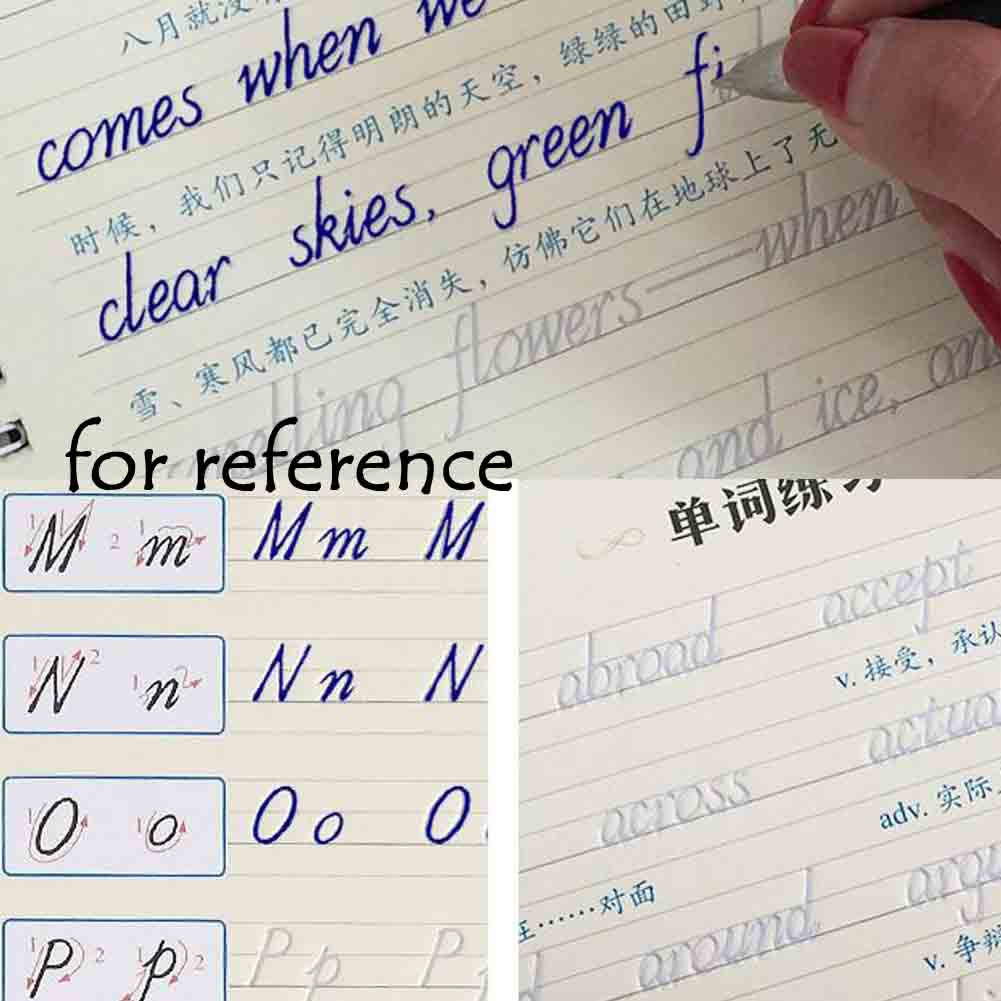 八月就没
comes when we
时候，我们只记得明朗的天空，绿绿的田野，
clear skies, green fi
雪、寒风都已完全消失，仿佛它们在地球上了无
flowers—when
and ice, and
for reference
1 M 2 1 m M m M
1 N 2 1 n 2 N n N
1 O 1 o O o O
1 P 2 1 p 2 P p P
单词练习
abroad accept
v. 接受，承认
across actua
adv. 实际
around argu
……对面
v. 争辩